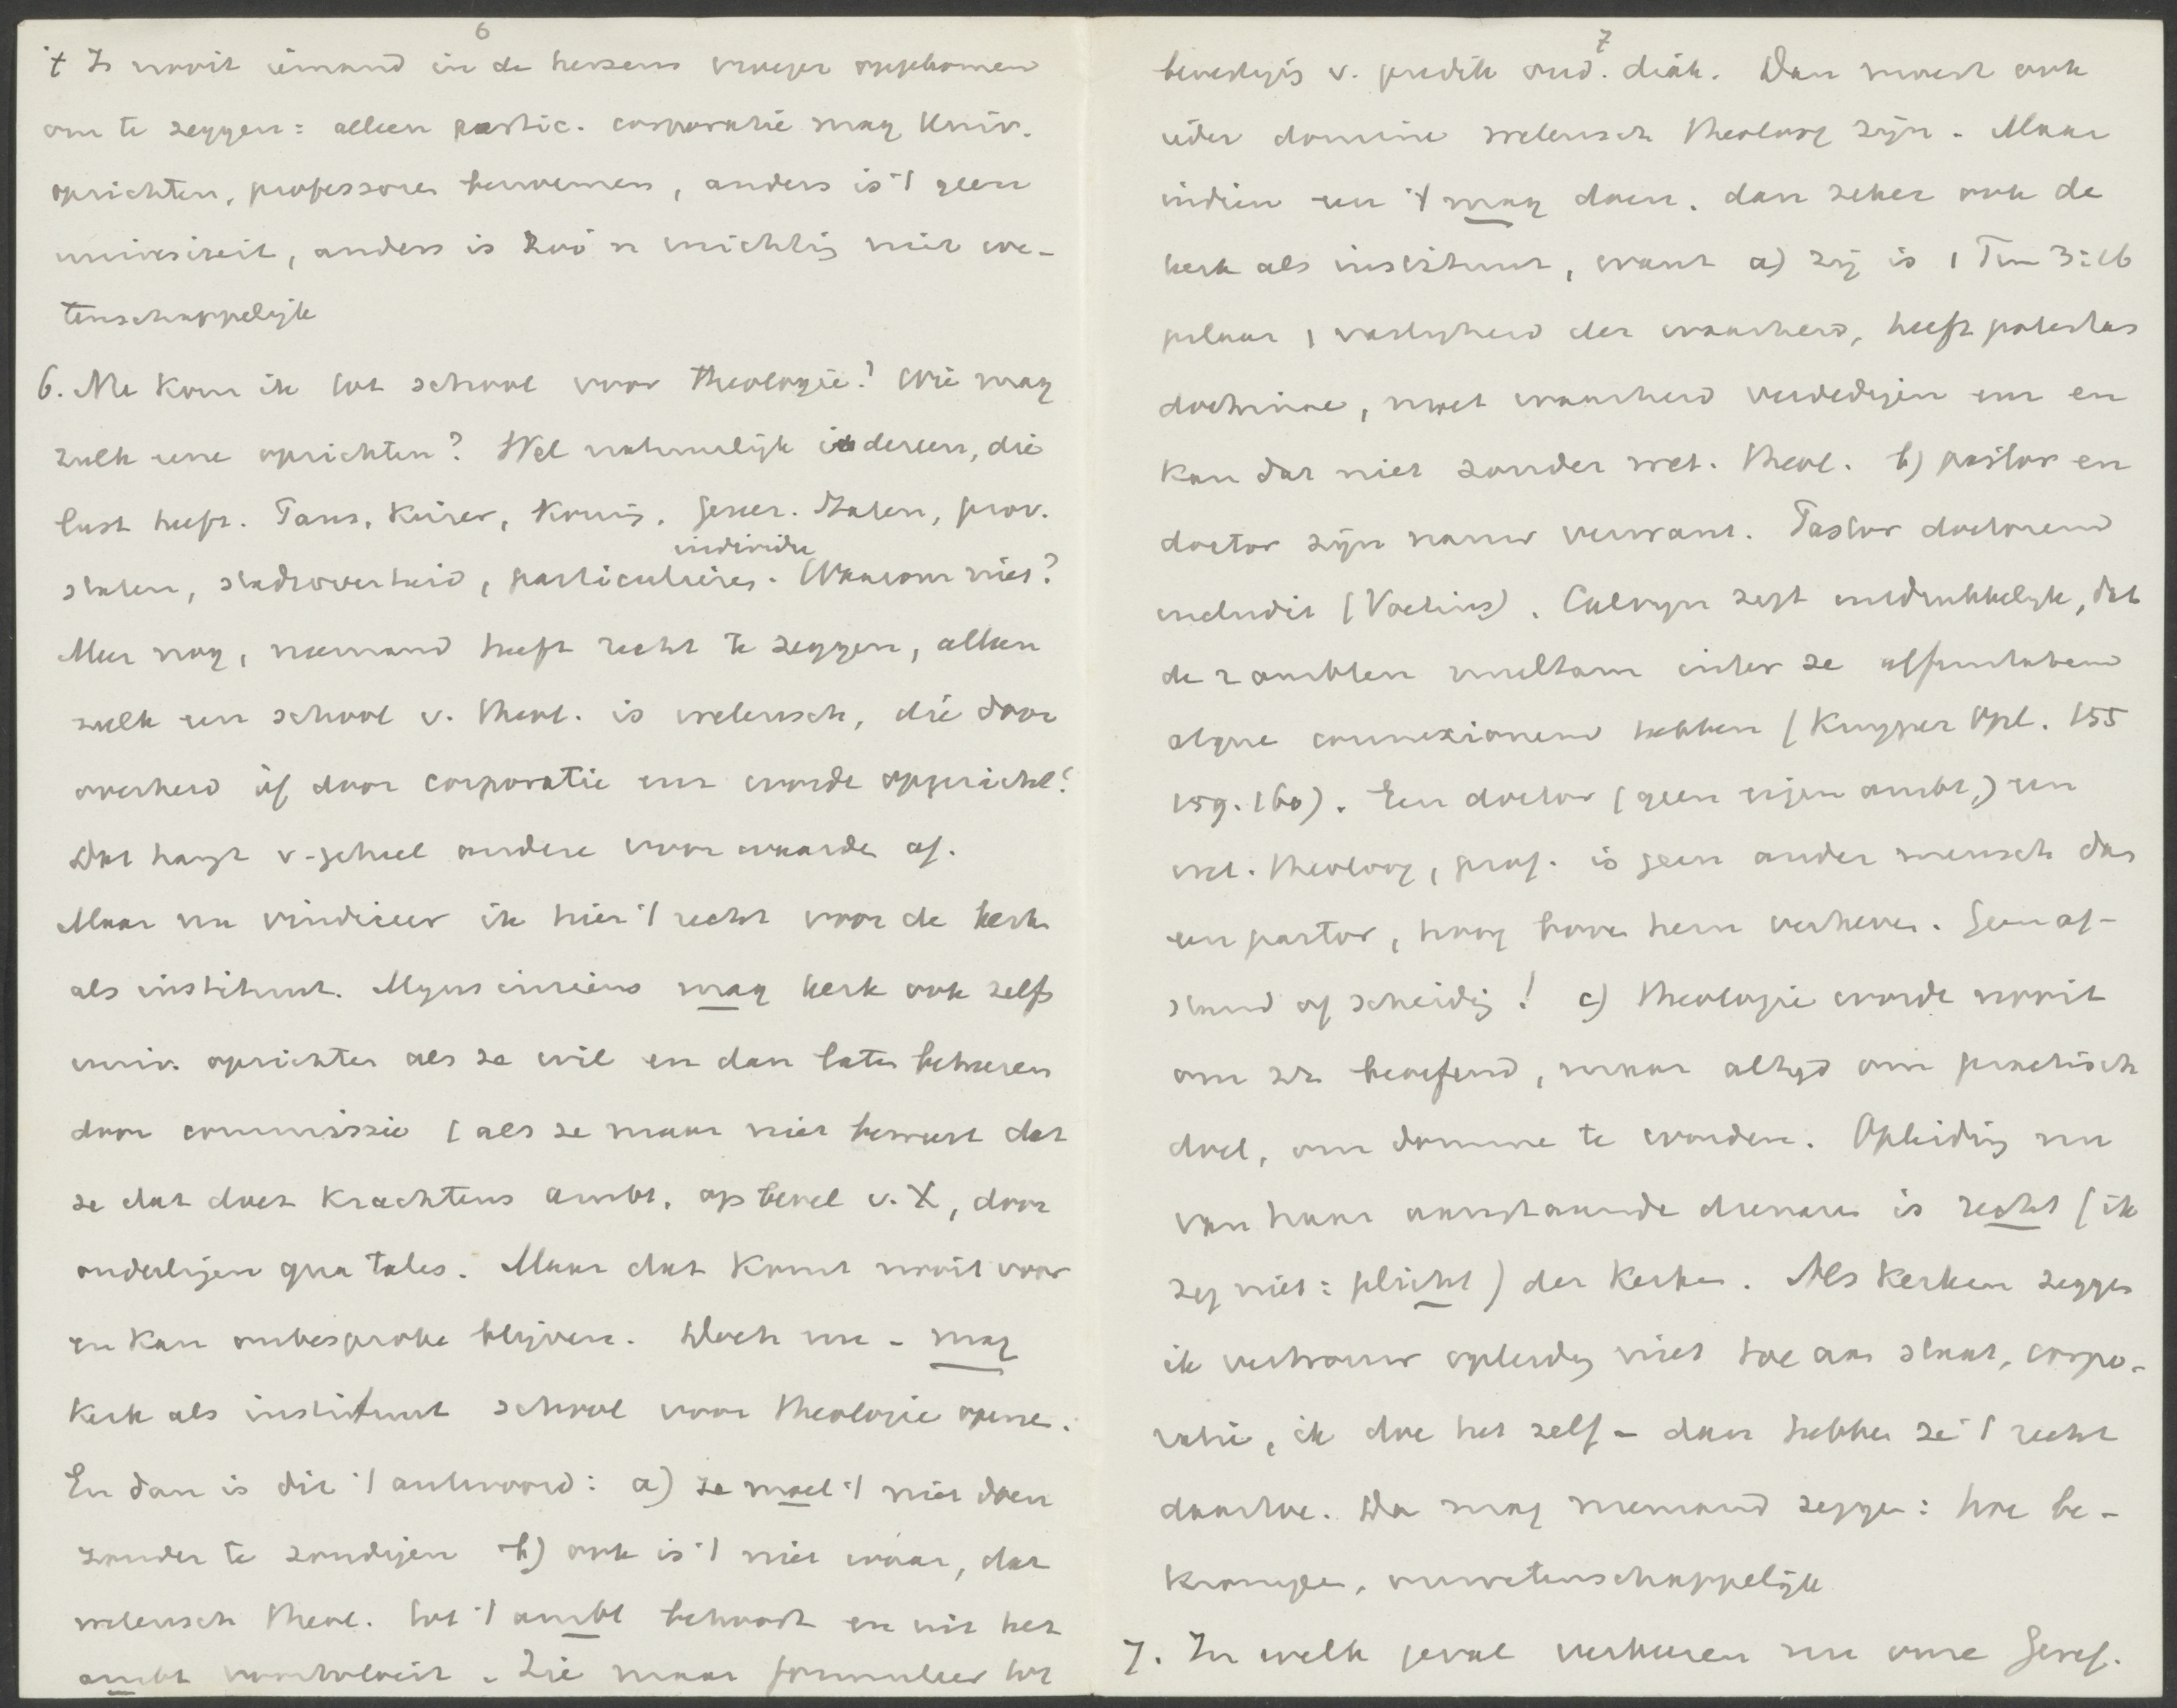 6
't Is nooit iemand in de hersens vroeger opgekomen
om te zeggen: alleen partic. corporatie mag Univ.
oprichten, professoren benoemen, anders is 't geen
universiteit, anders is zoo'n inrichtig niet we-
tenschappelijk
6. Nu kom ik tot school voor theologie? Wie mag
zulk eene oprichten? Wel natuurlijk iedereen, die
lust heeft. Paus, Keizer, Konig, Gener. Staten, prov.
individu
staten, stadsoverheid, particulieres. Waarom niet?
Meer nog, niemand heeft recht te zeggen, alleen
zulk een school v. theol. is wetensch, die door
overheid òf door corporatie enz worde opgericht?
Dat hangt v. geheel andere voorwaarde af.
Maar nu vindiceer ik hier 't recht voor de kerk
als instituut. Mijns inziens mag kerk ook zelfs
univ. oprichten als ze wil en dan laten beheeren
door commissie (als ze maar niet beweert dat
ze dat doet krachtens ambt, op bevel v. X, door
ouderlijen qua tales. Maar dat komt nooit voor
en kan onbesproke blijven. Doch nu - mag
kerk als instituut school voor theologie opene.
En dan is dit 't antwoord: a) ze moet 't niet doen
zonder te zondigen b) ook is 't niet waar, dat
wetensch theol. tot 't ambt behoort en uit het
ambt voortvloeit. Zie maar formulier tot
7
bevestigig v. predik oud. diak. Dan moest ook
ieder domine wetensch theoloog zijn. Maar
indien een 't mag doen, dan zeker ook de
kerk als instituut, want a) zij is 1 Tim 3:16
pilaar, vastigheid der waarheid, heeft potestas
doctrinae, moet waarheid verdedigen enz en
kan dat niet zonder wet. theol. b) pastor en
doctor zijn nauw verwant. Pastor doctorem
includit (Voetius). Calvijn zegt uitdrukkelijk, dat
de 2 ambten multam inter se affinitatem
atque connexionem hebben (Kuyper Opl. 155
159. 160). Een doctor (geen eigen ambt,) een
wet. theoloog, prof. is geen ander mensch dan
een pastor, hoog boven hem verheven. Geen af-
stand of scheidig! c) Theologie worde nooit
om zn beoefend, maar altijd om practisch
doel, om domine te worden. Opleidig nu
van haar aanstaande dienaren is recht (ik
zeg niet: plicht) der kerken. Als kerken zeggen
ik vertrouw opleidig niet toe aan staat, corpo-
ratie, ik doe het zelf - dan hebben ze 't recht
daartoe. Da mag niemand zeggen: hoe be-
krompen, onwetenschappelijk
7. In welk geval verkeeren nu onze Geref.